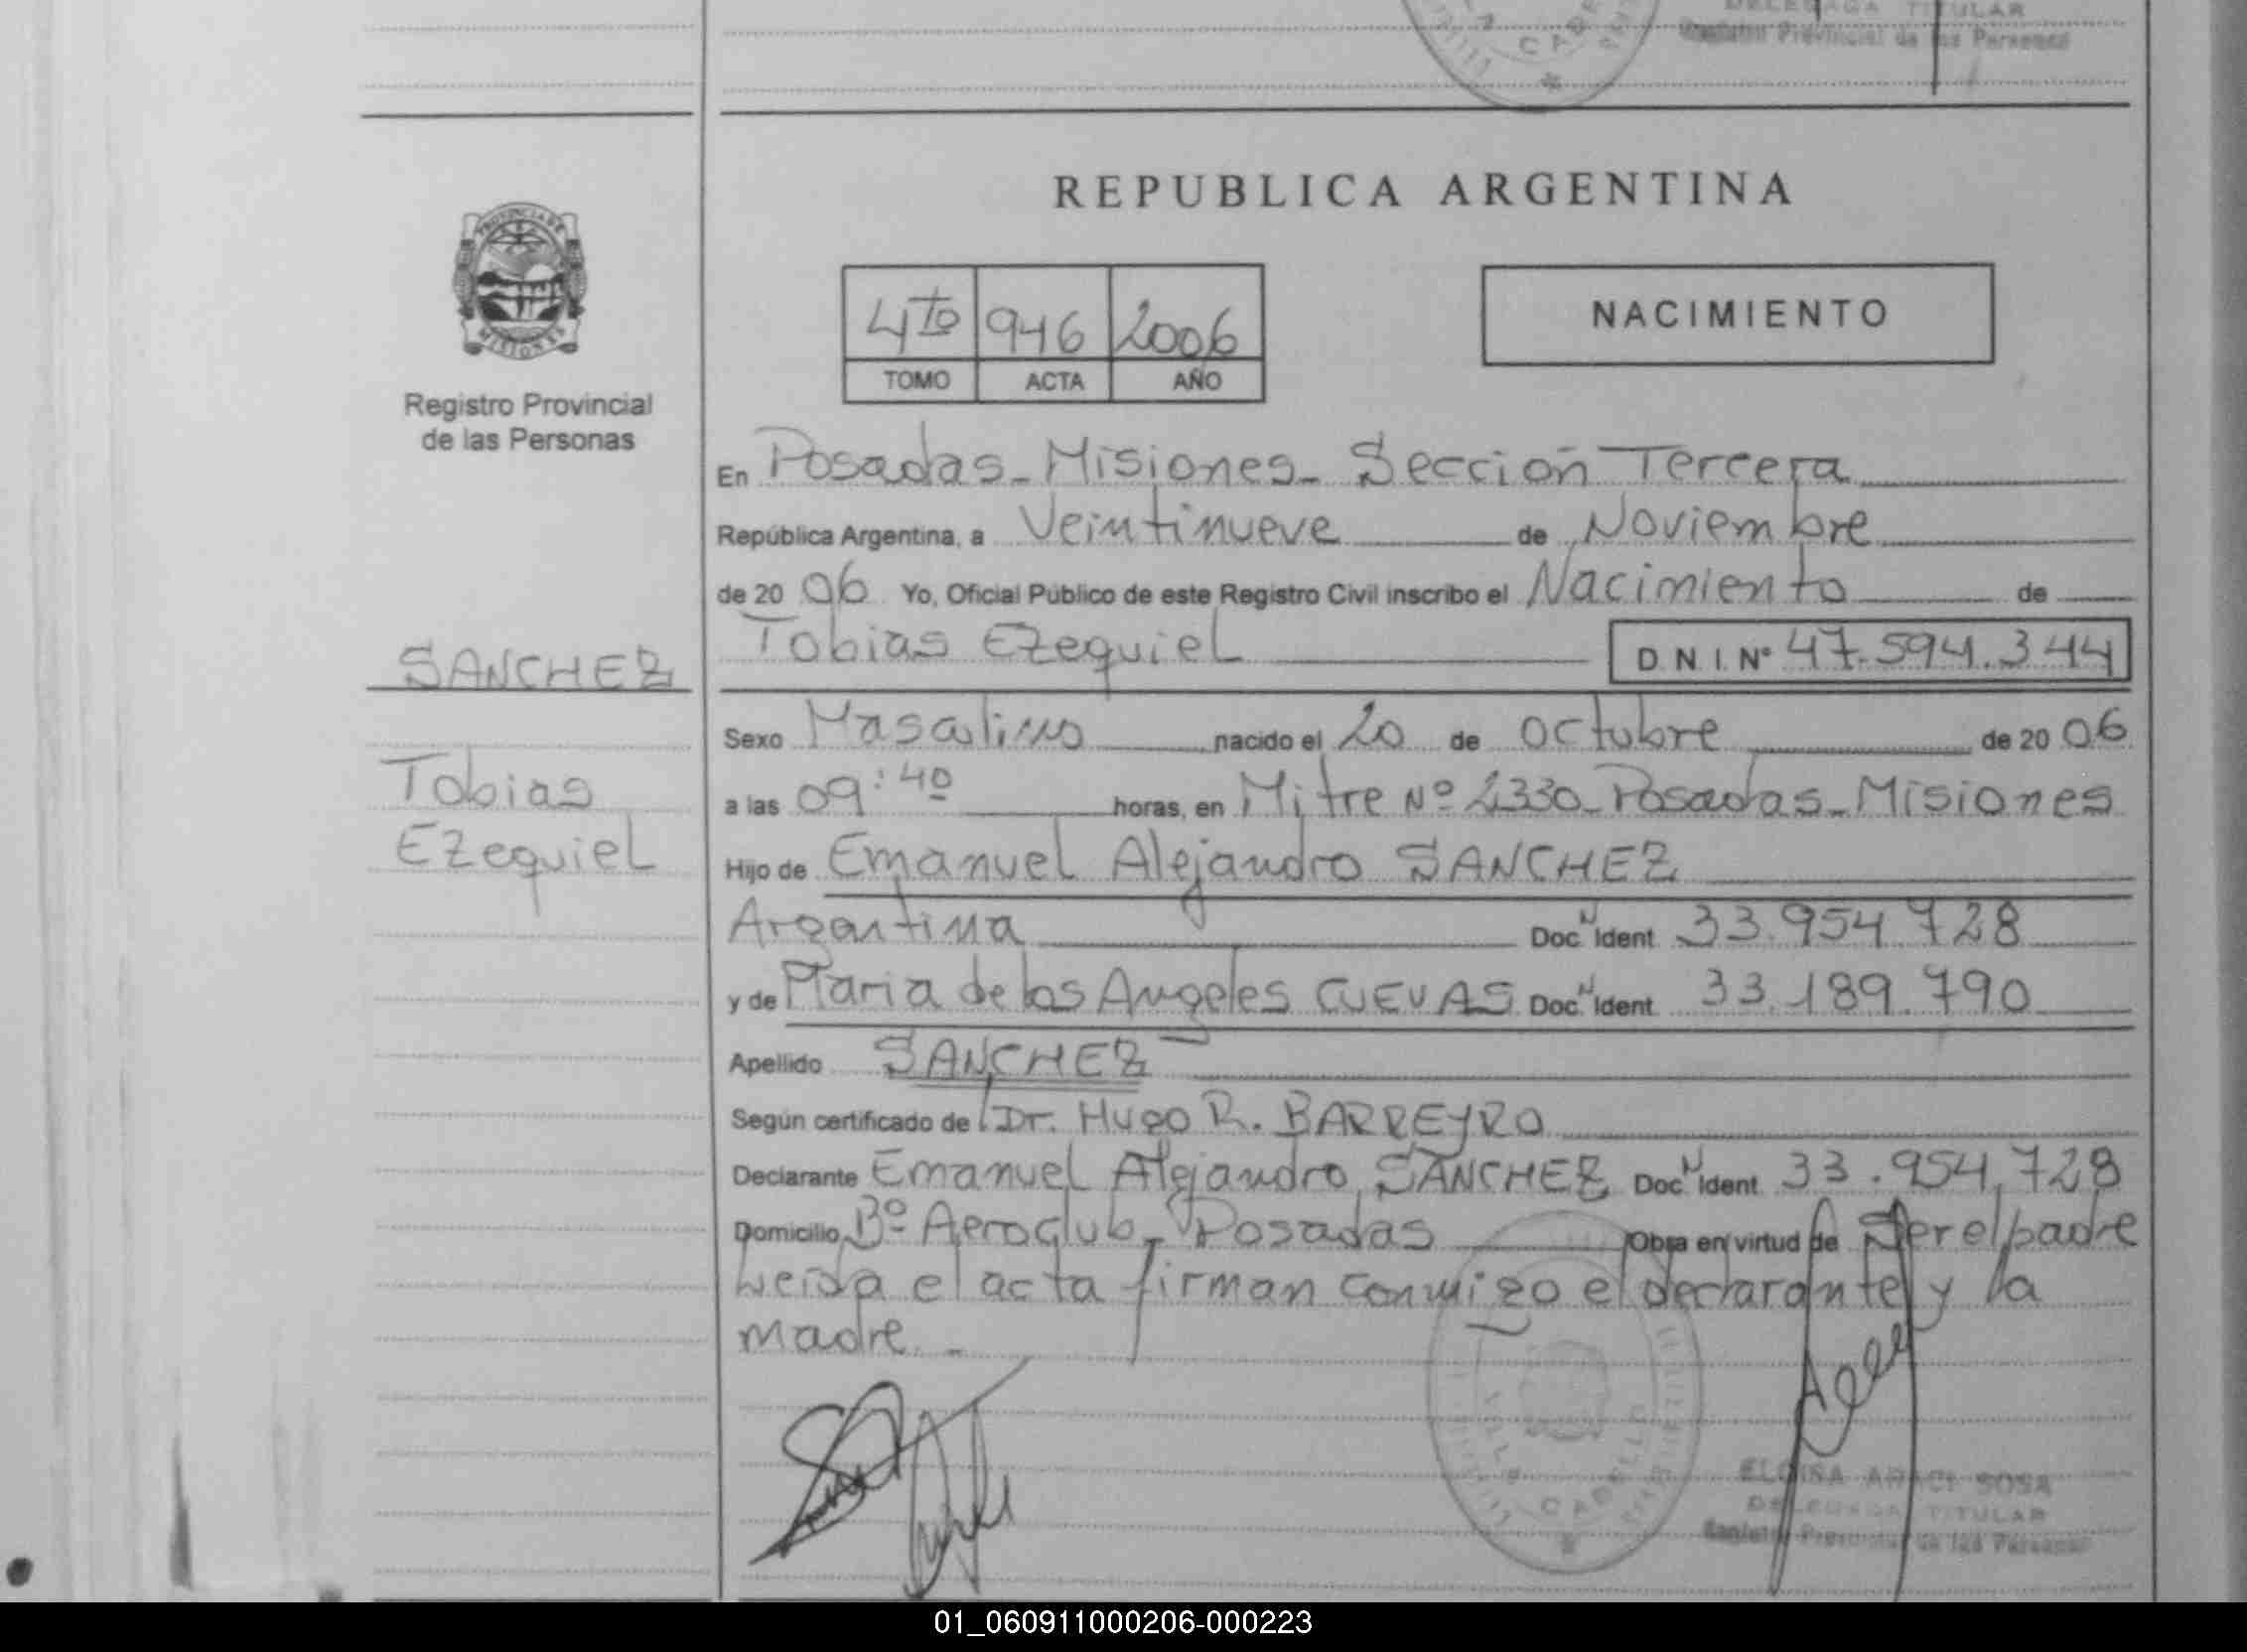 DELEGADA TITULAR
Registro Provincial de las Personas
REPUBLICA ARGENTINA
PROVINCIA DE
MISIONES
Registro Provincial
de las Personas
4to 946 2006
TOMO ACTA AÑO
NACIMIENTO
En Posadas - Misiones - Sección Tercera
República Argentina, a Veintinueve de Noviembre
de 20 06 Yo, Oficial Público de este Registro Civil inscribo el Nacimiento de
Tobias Ezequiel D N I. Nº 47.594.344
SANCHEZ
Tobias
Ezequiel
Sexo Masculino nacido el 20 de Octubre de 20 06
a las 09:40 horas, en Mitre Nº 2330 - Posadas - Misiones
Hijo de Emanuel Alejandro SANCHEZ
Argentina Doc. N Ident 33.954.728
y de Maria de los Angeles CUEVAS Doc. N Ident 33.189.790
Apellido SANCHEZ
Según certificado de Dr. Hugo R. BARREYRO
Declarante Emanuel Alejandro SANCHEZ Doc. N Ident 33.954.728
Domicilio Bº Aeroclub - Posadas Obra en virtud de Ser el padre
Leida el acta firman conmigo el declarante y la
madre. -
ELOISA ARACI SOSA
DELEGADA TITULAR
Registro Provincial de las Personas
01_060911000206-000223